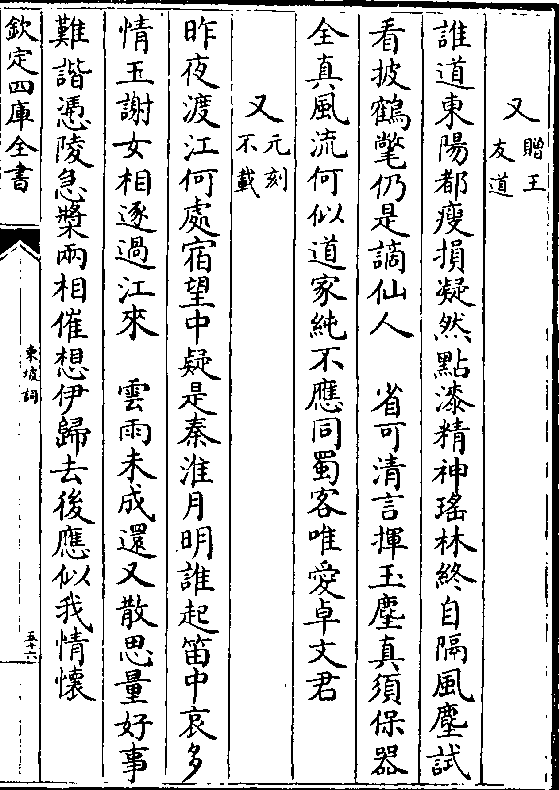 又贈王友道
誰道東陽都瘦損凝然點漆精神瑤林終自隔風塵試
看披鶴氅仍是謫仙人　省可清言揮玉麈真須保器
全真風流何似道家純不應同蜀客唯愛卓文君
又元刻不載
昨夜渡江何處宿望中疑是秦淮月明誰起笛中哀多
情王謝女相逐過江來　雲雨未成還又散思量好事
難諧憑陵急槳兩相催想伊歸去後應似我情懷
欽定四庫全書
東坡詞
五十六